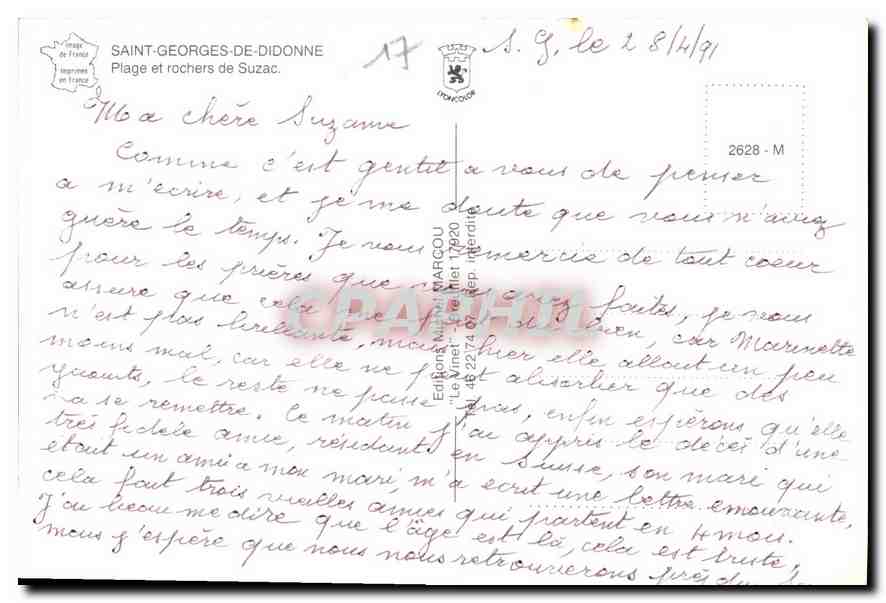 Image
de France
Imprimée
en France
SAINT-GEORGES-DE-DIDONNE
Plage et rochers de Suzac.
17
LYONCOLOR
S. G, le 28/4/91
2628 - M
Ma chère Suzanne
Comme c'est gentil a vous de penser
a m'écrire, et je me doute que vous n'aviez
guère le temps. Je vous remercie de tout coeur
pour les prières que vous avez faites, je vous
assure que cela ne fait du bien, car Marinette
n'est pas brillante, mais hier elle allait un peu
moins mal, car elle ne peut absorber que des
yaourts, le reste ne passe pas, enfin espérons qu'elle
va se remettre. Ce matin j'ai appris le décès d'une
très fidèle amie, résidant en Suisse, son mari qui
était un ami a mon mari, m'a écrit une lettre emouvante,
cela fait trois vieilles amies qui partent en 4 mois.
J'ai beau me dire que l'âge est là, cela est triste,
mais j'espère que nous nous retrouverons près du
Editions Michel MARCOU
"Le Vinet" - 17920
Tél. 46 22 74 07 - Rep. interdite
CPAPHIL